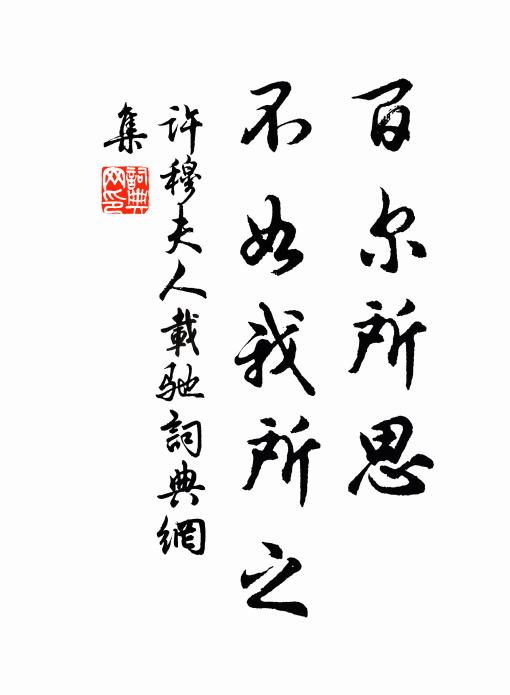 百尔所思
不如我所之
许穆夫人載馳詞典網
集
詞典网印